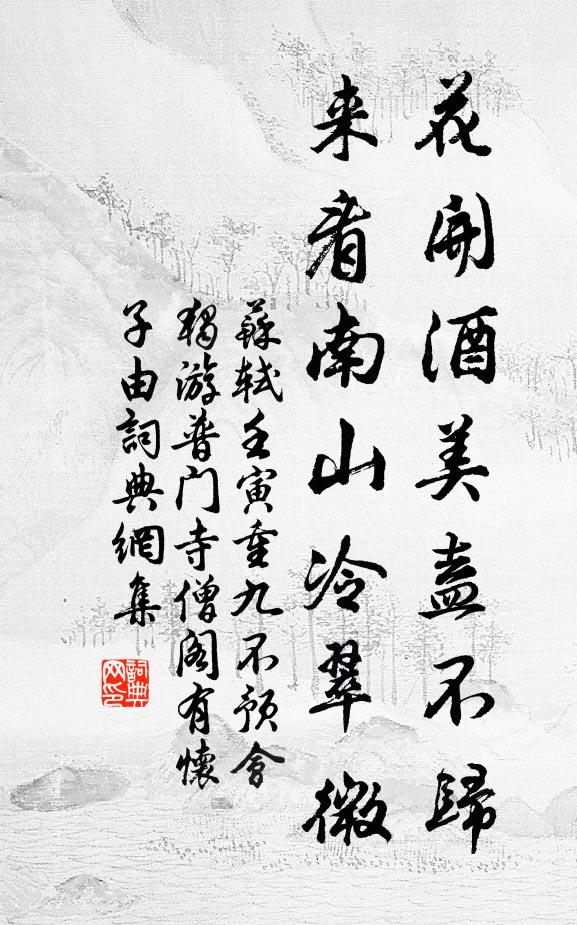 花開酒美盍不歸
来看南山冷翠微
蘇軾壬寅重九不預會
獨游普门寺僧阁有懷
子由詞典網集
詞典网印